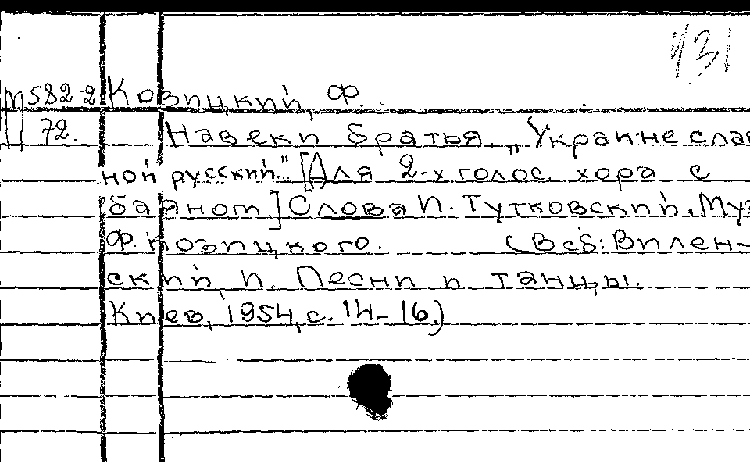 431
М582-2 Козицкий, Ф.
Ц 72. Навеки братья. „Украине слав
ной русский." [Для 2-х голос. хора с
баяном] Слова И. Тутковский. Муз
Ф. Козицкого. (В сб: Вилен-
ский, И. Песни и танцы.
Киев, 1954, с. 14-16.)